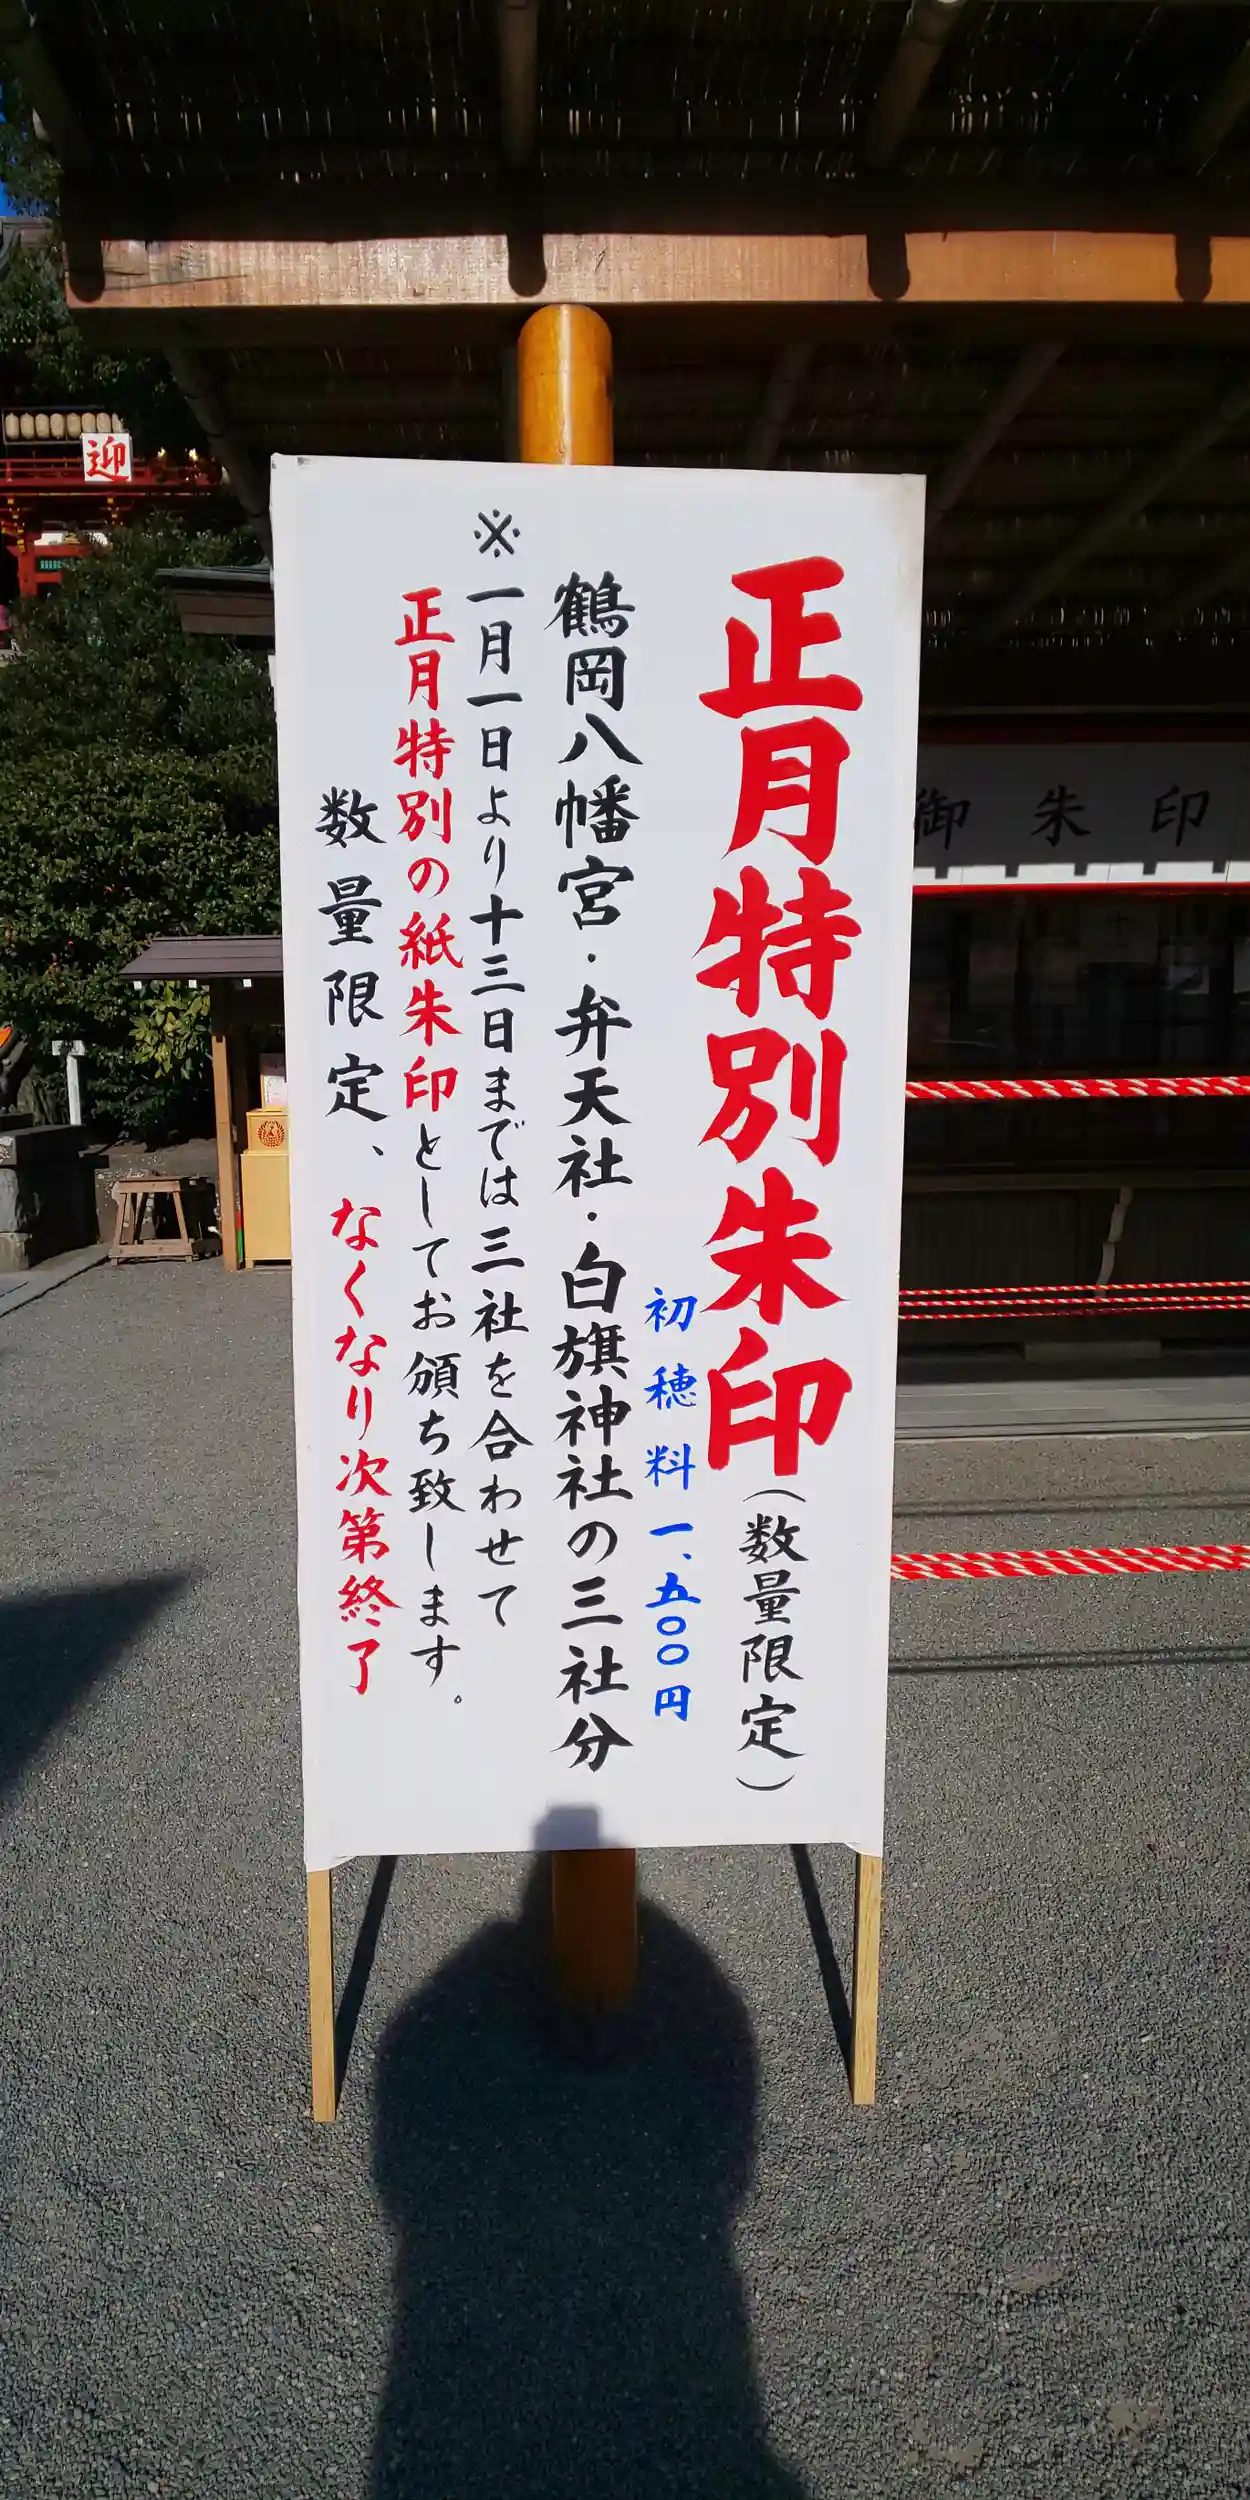 正月特別朱印(数量限定)
初穂料 一、五〇〇円
鶴岡八幡宮・弁天社・白旗神社の三社分
※一月一日より十三日までは三社を合わせて
正月特別の紙朱印としてお頒ち致します。
数量限定、なくなり次第終了
御朱印
迎